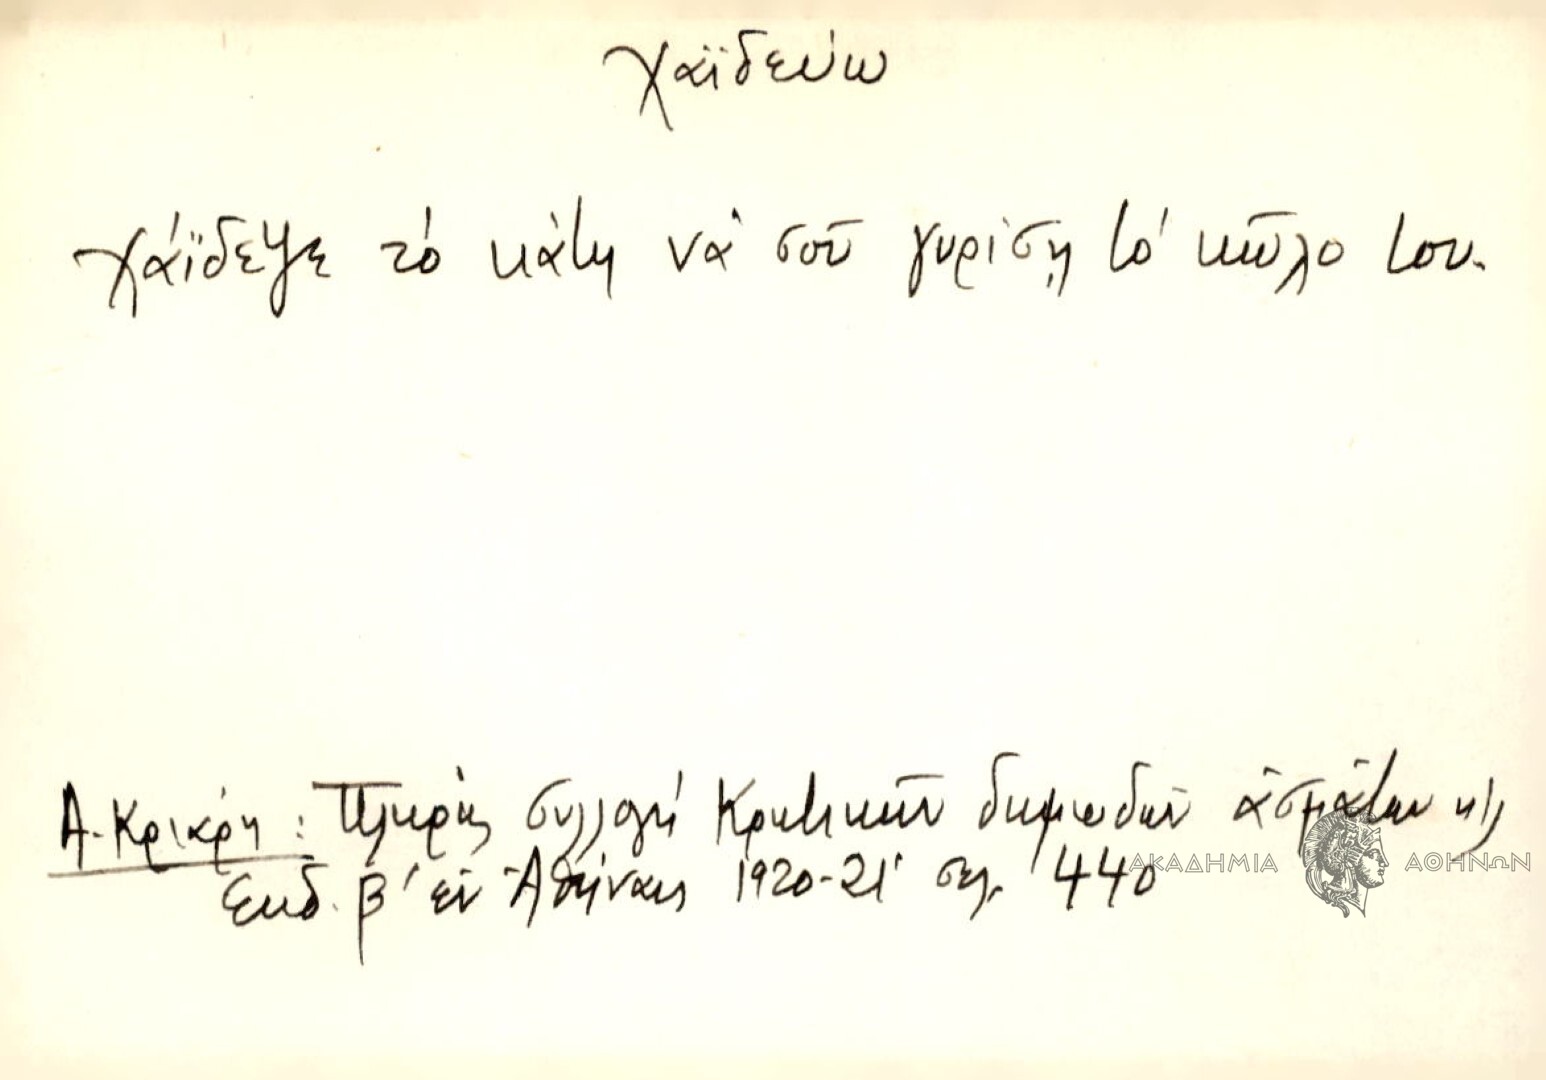 χαϊδεύω
χάϊδεψε τό κάτη νά σοῦ γυρίση τό κῶλο του.
Α. Κριάρη: Πλήρης συλλογή Κρητικῶν δημωδῶν ἀσμάτων κλ
Εκδ. β' ἐν Ἀθήναις 1920-21 σελ. 440
ΑΚΑΔΗΜΙΑ ΑΘΗΝΩΝ